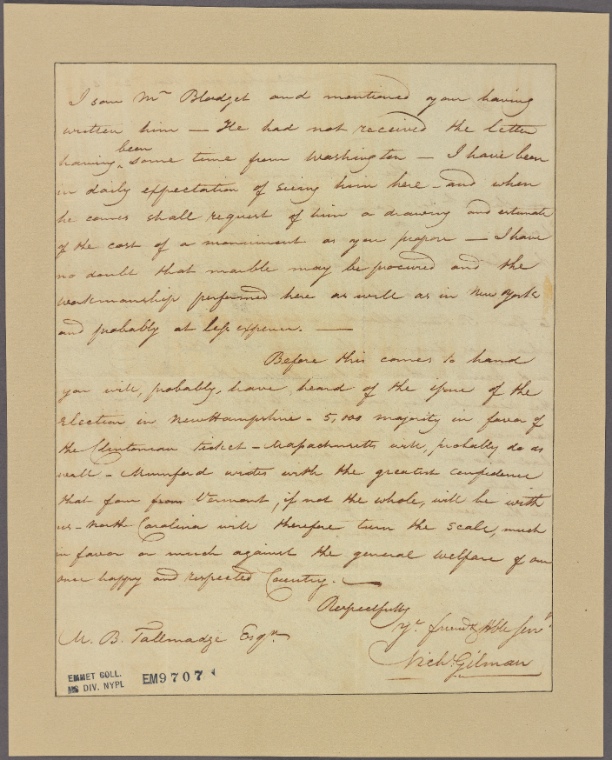 I saw Mr Blodget and mentioned your having
written him — He had not received the letter
been
having some time from Washington — I have been
in daily expectation of seeing him here — and when
he comes shall request of him a drawing and estimate
of the cost of a monument as you propose — I have
no doubt that marble may be procured and the
workmanship performed here as well as in New York
and probably at less expence. —
Before this comes to hand
you will, probably, have heard of the issue of the
Election in NewHampshire - 5,100 majority in favor of
the Clintonian ticket - Massachusetts will, probably do as
well - Mumford writes with the greatest confidence
that four from Vermont, if not the whole, will be with
us - North Carolina will therefore turn the scale, much
in favor or much against the general welfare of our
once happy and respected Country. —
Respectfully
Yr friend & Hble Servt
M. B. Tallmadge Esqr
Nichs Gilman
EMMET COLL.
MS DIV. NYPL
EM9707